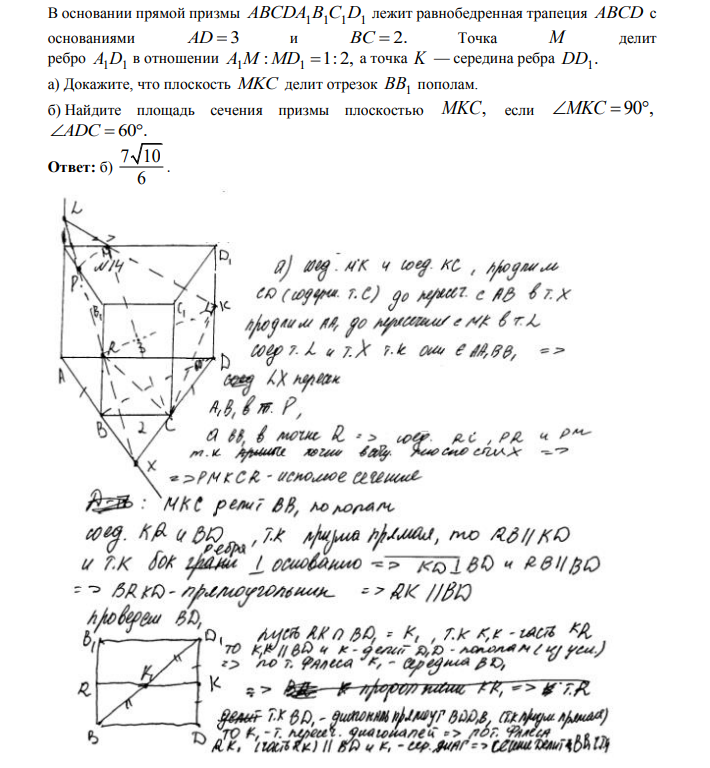 В основании прямой призмы ABCDA₁B₁C₁D₁ лежит равнобедренная трапеция ABCD с
основаниями AD = 3 и BC = 2. Точка M делит
ребро A₁D₁ в отношении A₁M : MD₁ = 1 : 2, а точка K — середина ребра DD₁.
а) Докажите, что плоскость MKC делит отрезок BB₁ пополам.
б) Найдите площадь сечения призмы плоскостью MKC, если ∠MKC = 90°,
∠ADC = 60°.
Ответ: б) 7√10/6.
L
M
D₁
N14
P
B₁
C₁
K
R
3
A
D
B
2
C
X
а) соед. MK и соед. KC, продлим
CD (содерж. т. C) до пересеч. с AB в т. X
продлим AA₁ до пересечения с MK в т. L
соед т. L и т. X т.к они ∈ AA₁BB₁ =>
соед LX пересек
A₁B₁ в т. P,
а BB₁ в точке R => соед. RC, PR и PM
т.к
=> PMKCR - искомое сечение
: MKC делит BB₁ пополам
соед. KR и BD, т.к призма прямая, то RB || KD
и т.к бок ребра ⊥ основанию => KD ⊥ BD и RB || BD
=> BRKD - прямоугольник => RK || BD
проведем BD₁
B₁
D₁
R
K₁
K
B
D
пусть RK ∩ BD₁ = K₁, т.к K₁K - часть KR
то K₁K || BD и K - делит D₁D - пополам (из усл.)
=> по т. Фалеса K₁ - середина BD₁
=> KK₁ => т. R
т.к BD₁ - диагональ прямоуг BDD₁B₁ (т.к призм прямая)
то K₁ - т. пересеч. диагоналей => по т. Фалеса
RK₁ (часть RK) || BD и K₁ - сер. диаг => сечение делит BB₁